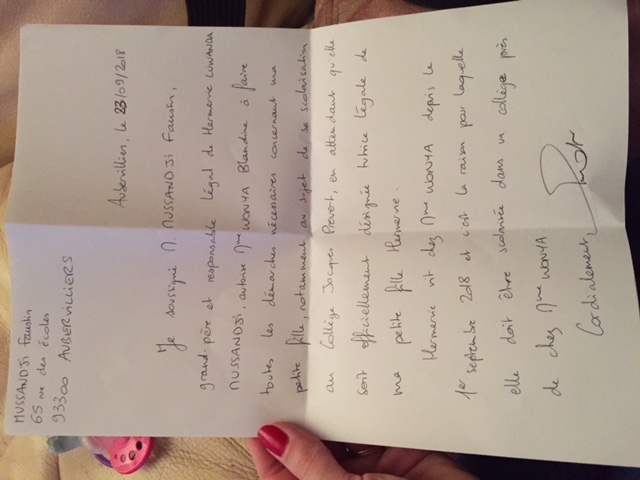 MUSSANDJI Faustin
65 rue des écoles
93300 AUBERVILLIERS
Aubervilliers, le 23/09/2018
Je soussigné M. MUSSANDJI Faustin,
grand-père et responsable légal de Hermenie LUWANDA
MUSSANDJI, autorise Mme WONYA Blandine à faire
toutes les démarches nécessaires concernant ma
petite fille, notamment au sujet de sa scolarisation
au Collège Jacques Prévert, en attendant qu'elle
soit officiellement désignée tutrice légale de
ma petite fille Hermenie.
Hermenie vit chez Mme WONYA depuis le
1er septembre 2018 et c'est la raison pour laquelle
elle doit être scolarisée dans un collège près
de chez Mme WONYA
Cordialement,